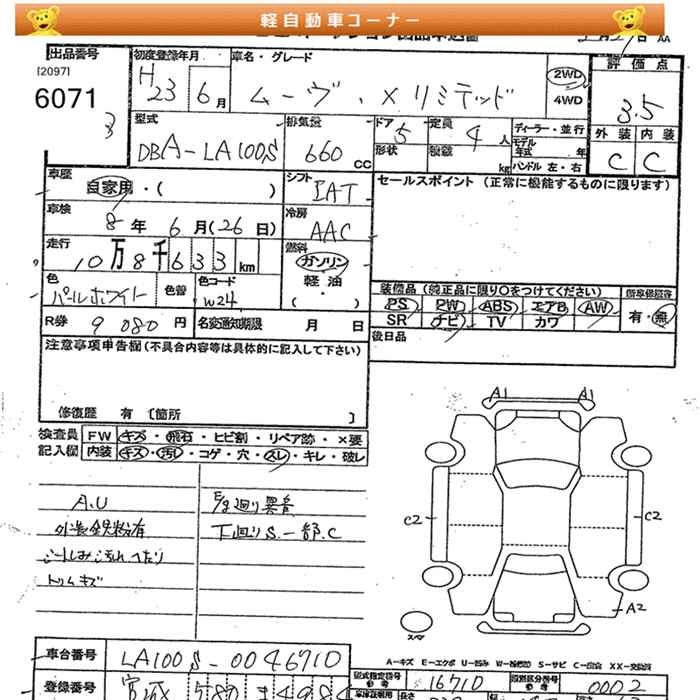 軽自動車コーナー
出品番号 初度登録年月 車名・グレード 評価点
[2097] H23 6月 ムーヴ・X リミテッド 2WD 4WD 3.5
6071
3
外装 内装
C C
型式 排気量 ドア 定員 ディーラー・並行
DBA-LA100S 660 CC 5 4人 モデル年式 年
形状 積載 kg ハンドル 左・右
車歴 シフト セールスポイント(正常に機能するものに限ります)
自家用・( ) IAT
車検 冷房
8年 6月(26日) AAC
走行 燃料
10万8千633km ガソリン・軽油・( )
色 色替 色コード
パールホワイト W24
装備品(純正品に限り○をつけてください)
PS PW ABS エアB AW 有・無
SR ナビ TV カワ
R券 9080円 名変通知期限 月 日
後日品
注意事項申告欄(不具合内容等は具体的に記入して下さい)
修復歴 有 〔箇所 〕
検査員記入欄
FW キズ・飛石・ヒビ割・リペア跡・×要
内装 キズ・汚レ・コゲ・穴・スレ・キレ・破レ
A.U E/g廻り異音
外装鉄粉有 下廻りS.一部.C
シートしみ汚れへたり
トリムキズ
A1 A1
C2 C2
A2
スペア
A-キズ E-エクボ U-凹み W-補修跡 S-サビ C-腐食 XX-交換済
車台番号 LA100S-0046710
型式指定番号 16710 類別区分番号 0002
登録番号 宮城 580
長さ